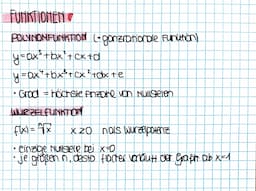 FUNKTIONEN
POLYNOMFUNKTION (→ ganzrationale Funktion)
y=ax³+bx²+cx+d
y=ax⁴+bx³+cx²+dx+e
• Grad = höchste Anzahl von Nullstellen
WURZELFUNKTION
f(x) = ⁿ√x x≥0 n als Wurzelexponent
• einzige Nullstelle bei x=0
• je größer n, desto flacher verläuft der Graph ab x=1